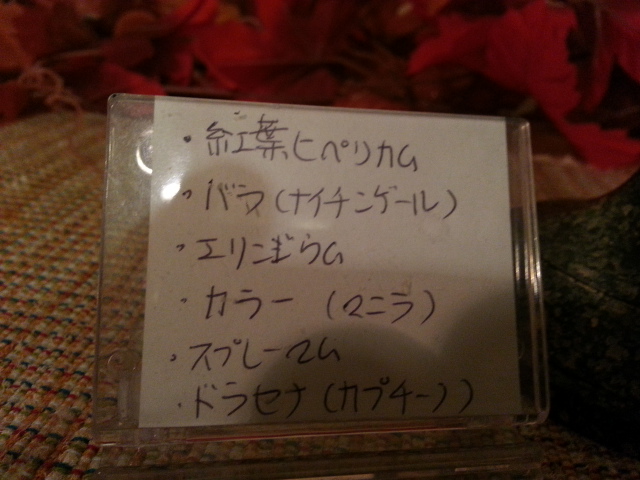 ・紅葉ヒペリカム
・バラ（ナイチンゲール）
・エリンぎらム
・カラー（マニラ）
・スプレーマム
・ドラセナ（カプチーノ）